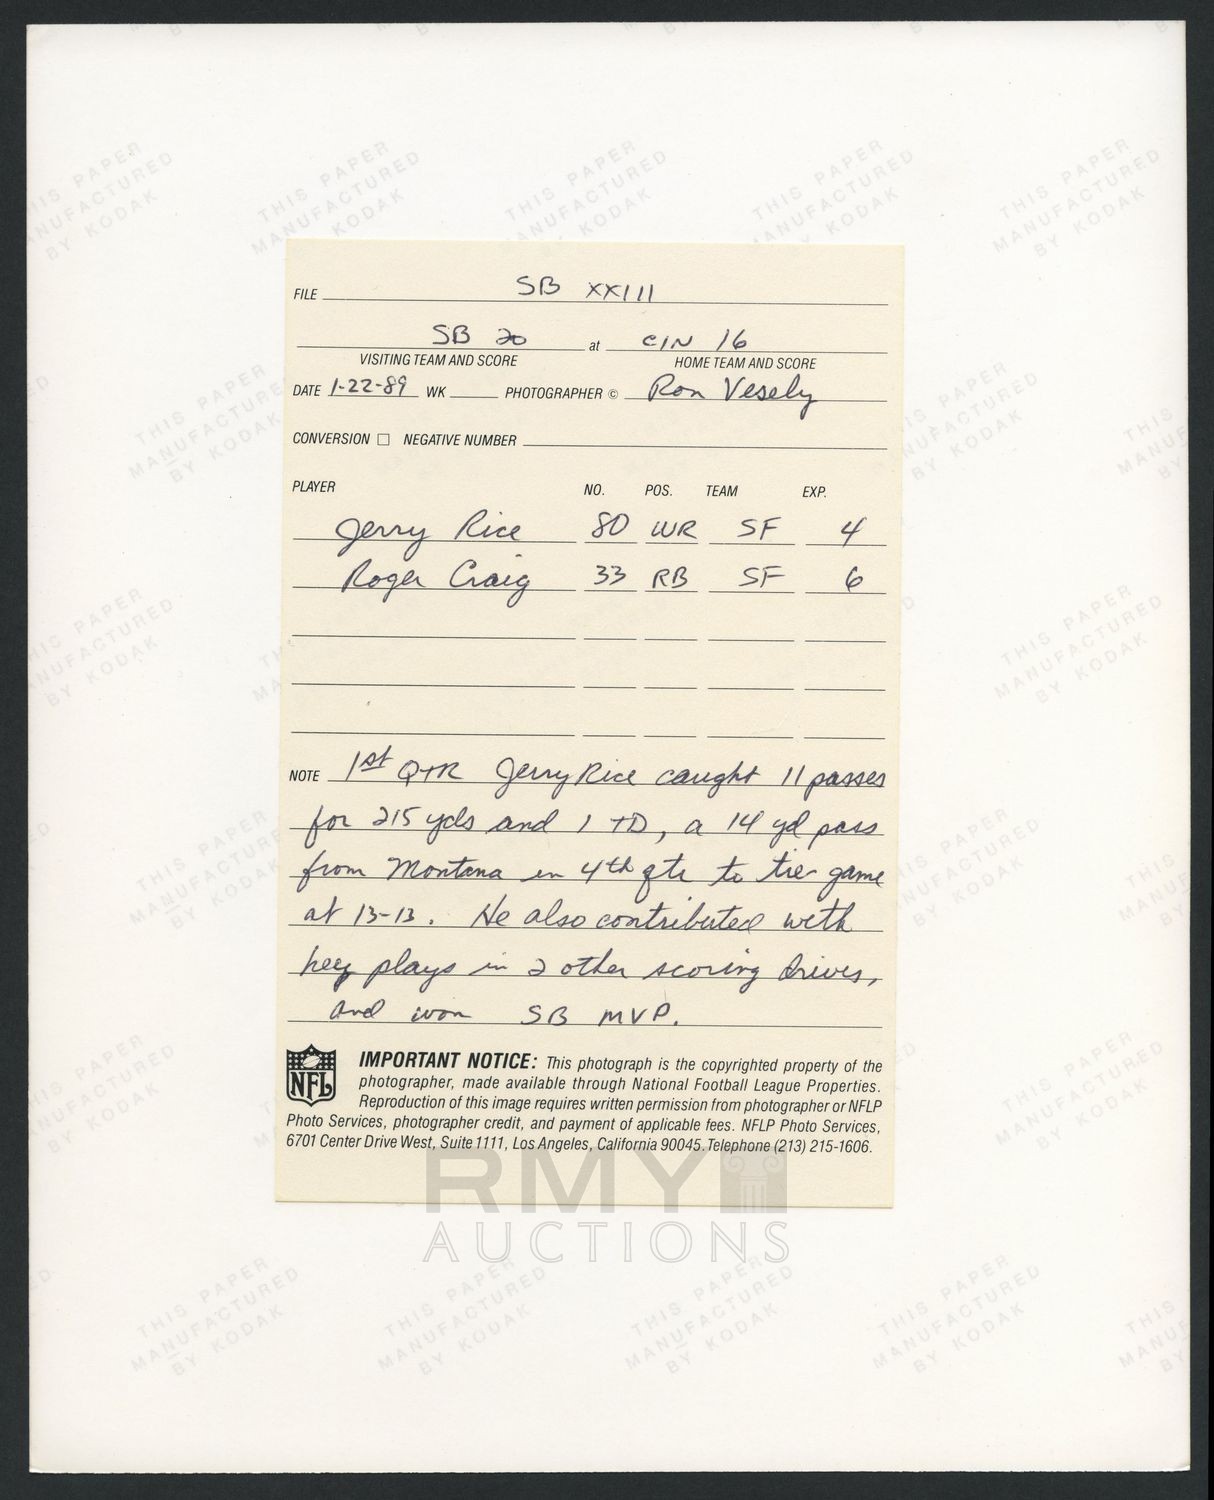 THIS PAPER
MANUFACTURED
BY KODAK
FILE SB XXIII
SB 20 at CIN 16
VISITING TEAM AND SCORE HOME TEAM AND SCORE
DATE 1-22-89 WK PHOTOGRAPHER © Ron Vesely
CONVERSION ☐ NEGATIVE NUMBER
PLAYER NO. POS. TEAM EXP.
Jerry Rice 80 WR SF 4
Roger Craig 33 RB SF 6
NOTE 1st QTR Jerry Rice caught 11 passes
for 215 yds and 1 TD, a 14 yd pass
from Montana in 4th qtr to tie game
at 13-13. He also contributed with
key plays in 2 other scoring drives,
and won SB MVP.
NFL
IMPORTANT NOTICE: This photograph is the copyrighted property of the
photographer, made available through National Football League Properties.
Reproduction of this image requires written permission from photographer or NFLP
Photo Services, photographer credit, and payment of applicable fees. NFLP Photo Services,
6701 Center Drive West, Suite 1111, Los Angeles, California 90045. Telephone (213) 215-1606.
RMY
AUCTIONS